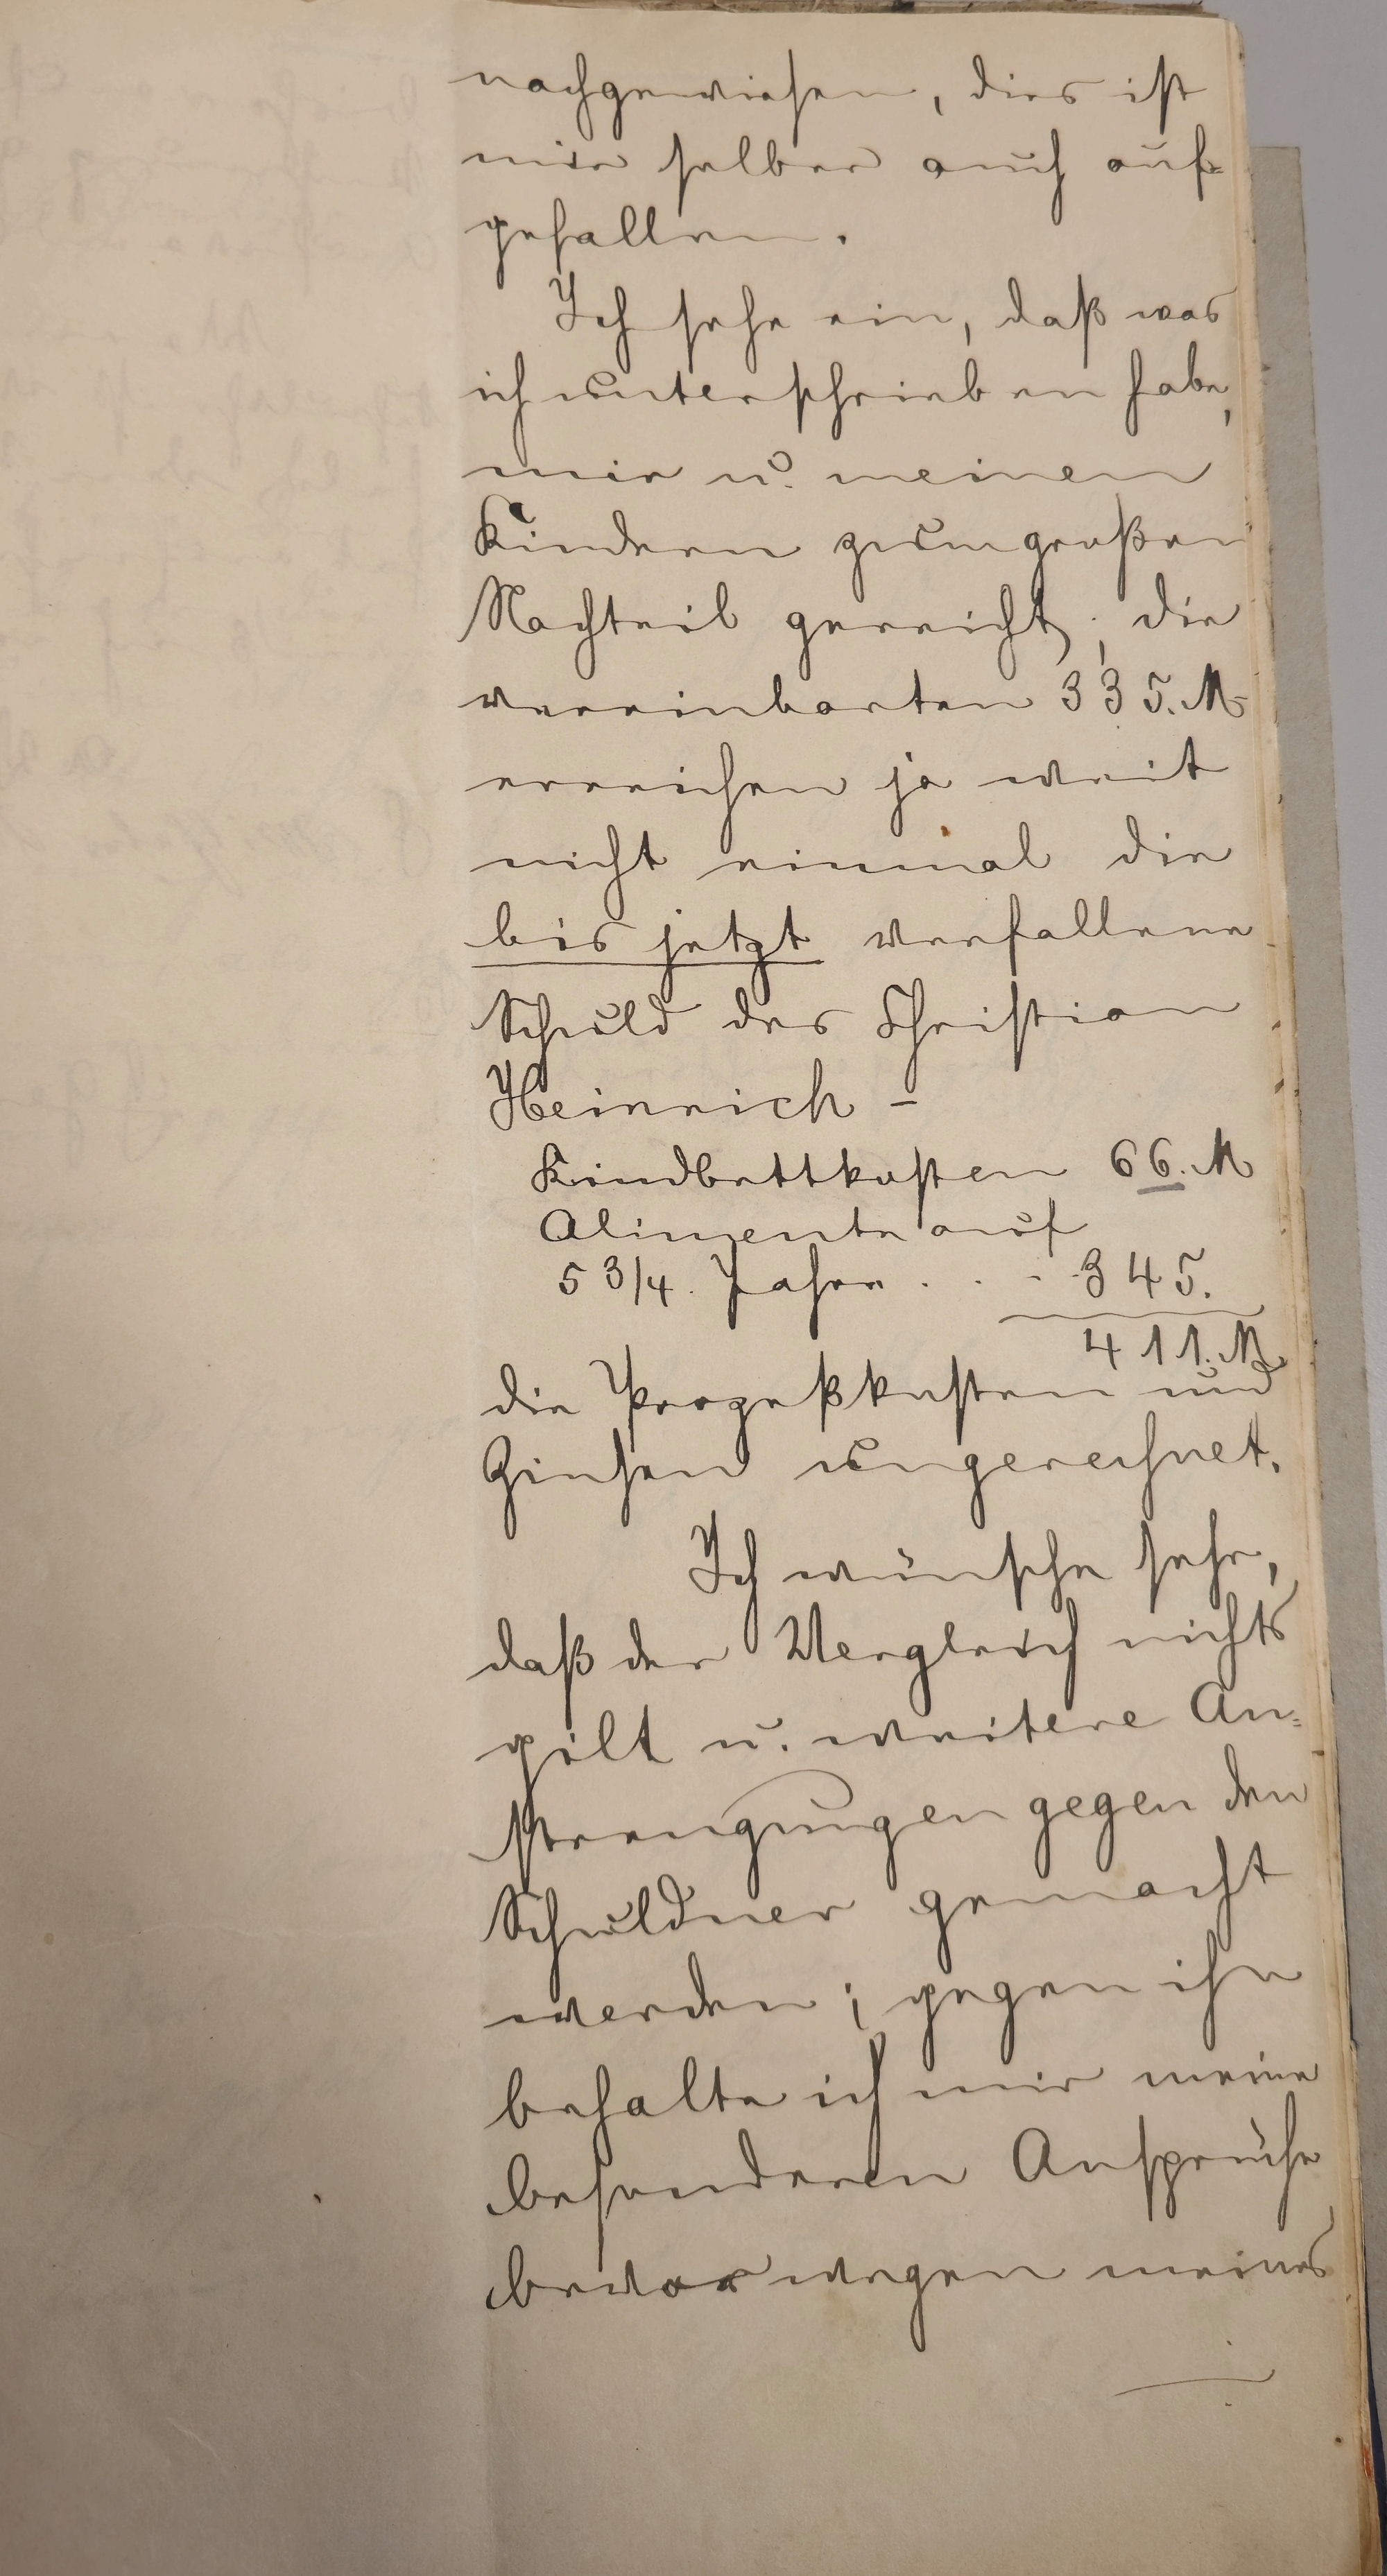 nachgewiesen, dies ist
mir selber auch auf-
gefallen.
Ich sehe ein, daß was
ich unterschrieben habe,
mir u. meinen
Kindern zum großen
Nachteil gereicht; die
vereinbarten 335. M
erreichen ja weit
nicht einmal die
bis jetzt verfallene
Schuld des Christian
Heinrich –
Kindbettkosten 66. M
Alimente auf
5 3/4. Jahre . . . 345.
411. M
die Prozeßkosten und
Zinsen ungerechnet.
Ich wünsche sehr,
daß der Vergleich nichts
gilt u. weitere An-
strengungen gegen den
Schuldner gemacht
werden; gegen ihn
behalte ich mir meine
besonderen Ansprüche
bevor wegen meines